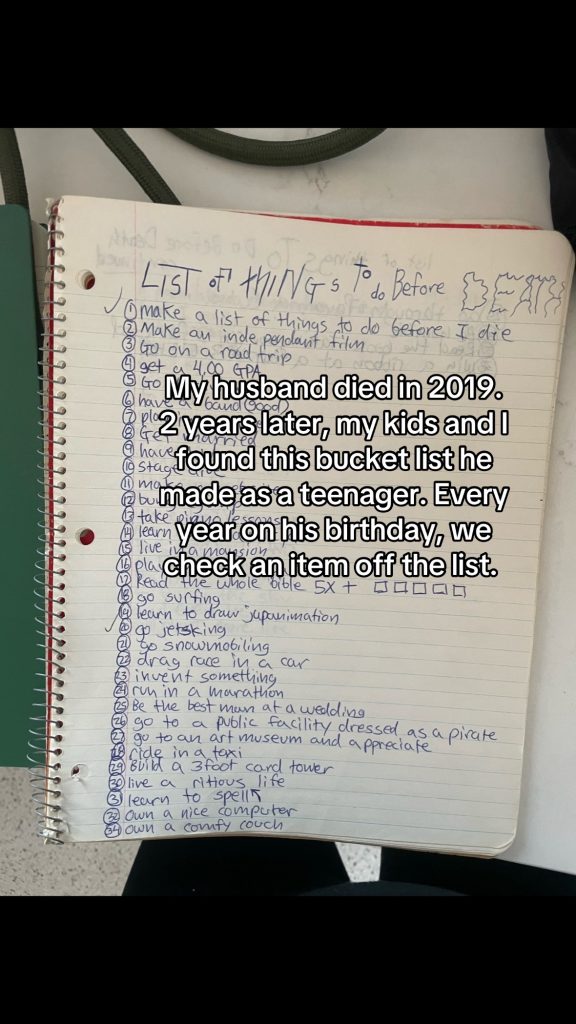 LIST of THINGS To do Before DEATH
① make a list of things to do before I die
② Make an independant film
③ Go on a road trip
④ get a 4.00 GPA
⑤ Go
⑥ have a band (good)
⑦
⑧ Get married
⑨ have
⑩ stage dive
⑪ make
⑫
⑬ take piano lessons
⑭ learn
⑮ live in a mansion
⑯
⑰ Read the whole bible 5X +
⑱ go surfing
⑲ learn to draw japanimation
⑳ go jetsking
㉑ go snowmobiling
㉒ drag race in a car
㉓ invent something
㉔ run in a marathon
㉕ Be the best man at a wedding
㉖ go to a public facility dressed as a pirate
㉗ go to an art museum and appreciate
㉘ ride in a taxi
㉙ Build a 3foot card tower
㉚ live a rittious life
㉛ learn to spell
㉜ Own a nice computer
㉞ own a comfy couch
My husband died in 2019.
2 years later, my kids and I
found this bucket list he
made as a teenager. Every
year on his birthday, we
check an item off the list.